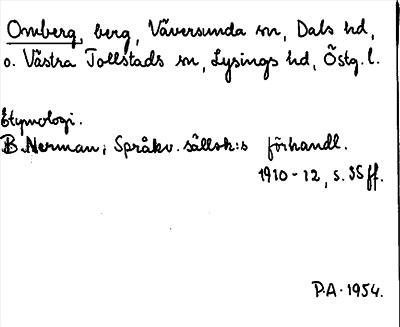 Omberg, berg, Väversunda sn, Dals hd,
o. Västra Tollstads sn, Lysings hd, Östg. l.
Etymologi.
B. Nerman i Språkv. sällsk:s förhandl.
1910-12, s. 35 ff.
P.A. 1954.